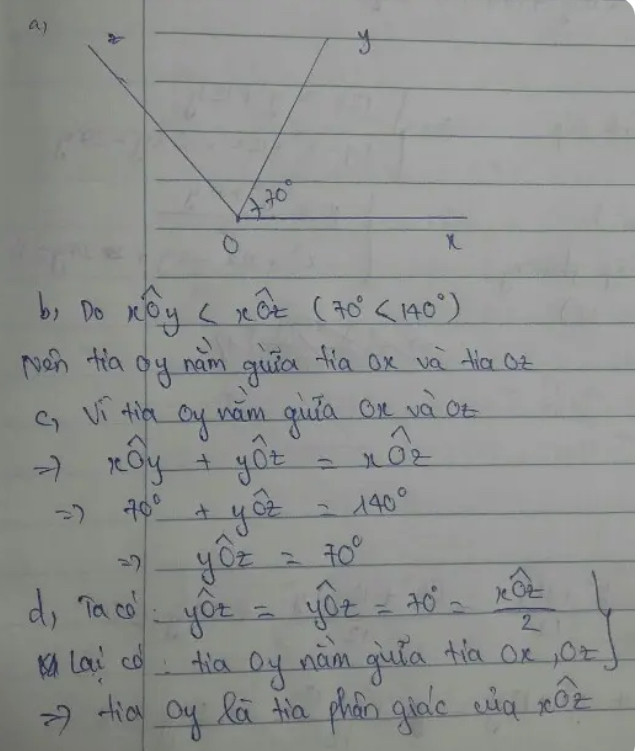 a,
z
y
70°
O
x
b, Do xÔy < xÔz (70° < 140°)
Nên tia Oy nằm giữa tia Ox và tia Oz
c, Vì tia Oy nằm giữa Ox và Oz
=> xÔy + yÔz = xÔz
=> 70° + yÔz = 140°
=> yÔz = 70°
d, Ta có: yÔz = yÔz = 70° = xÔz/2
Lại có: tia Oy nằm giữa tia Ox, Oz
=> tia Oy là tia phân giác của xÔz